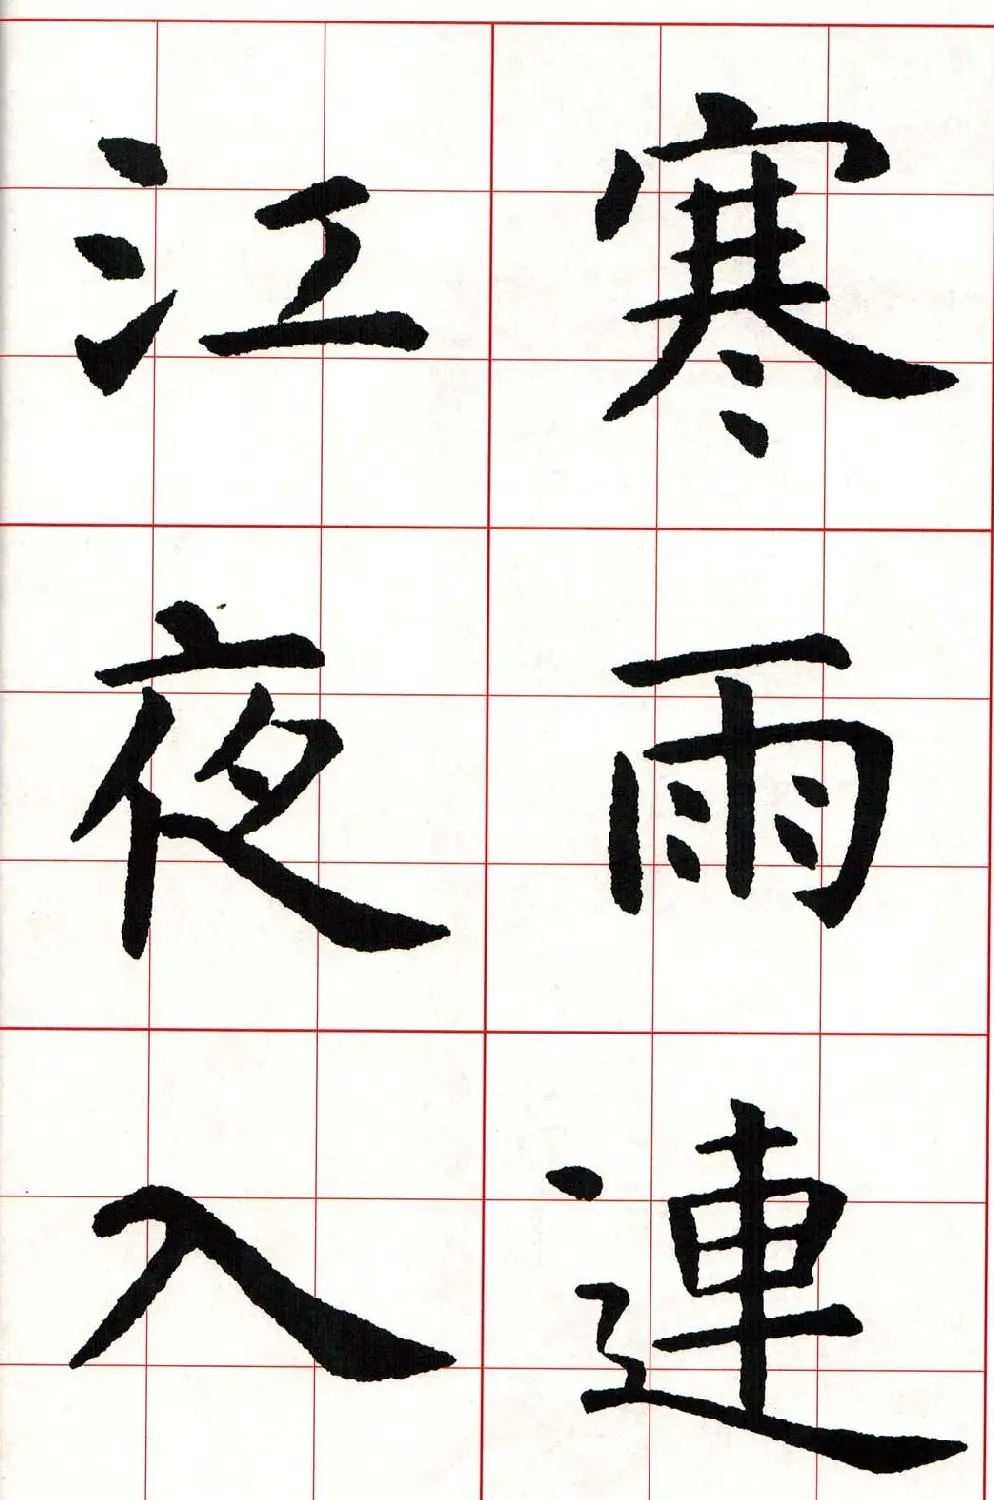 寒雨連
江夜入